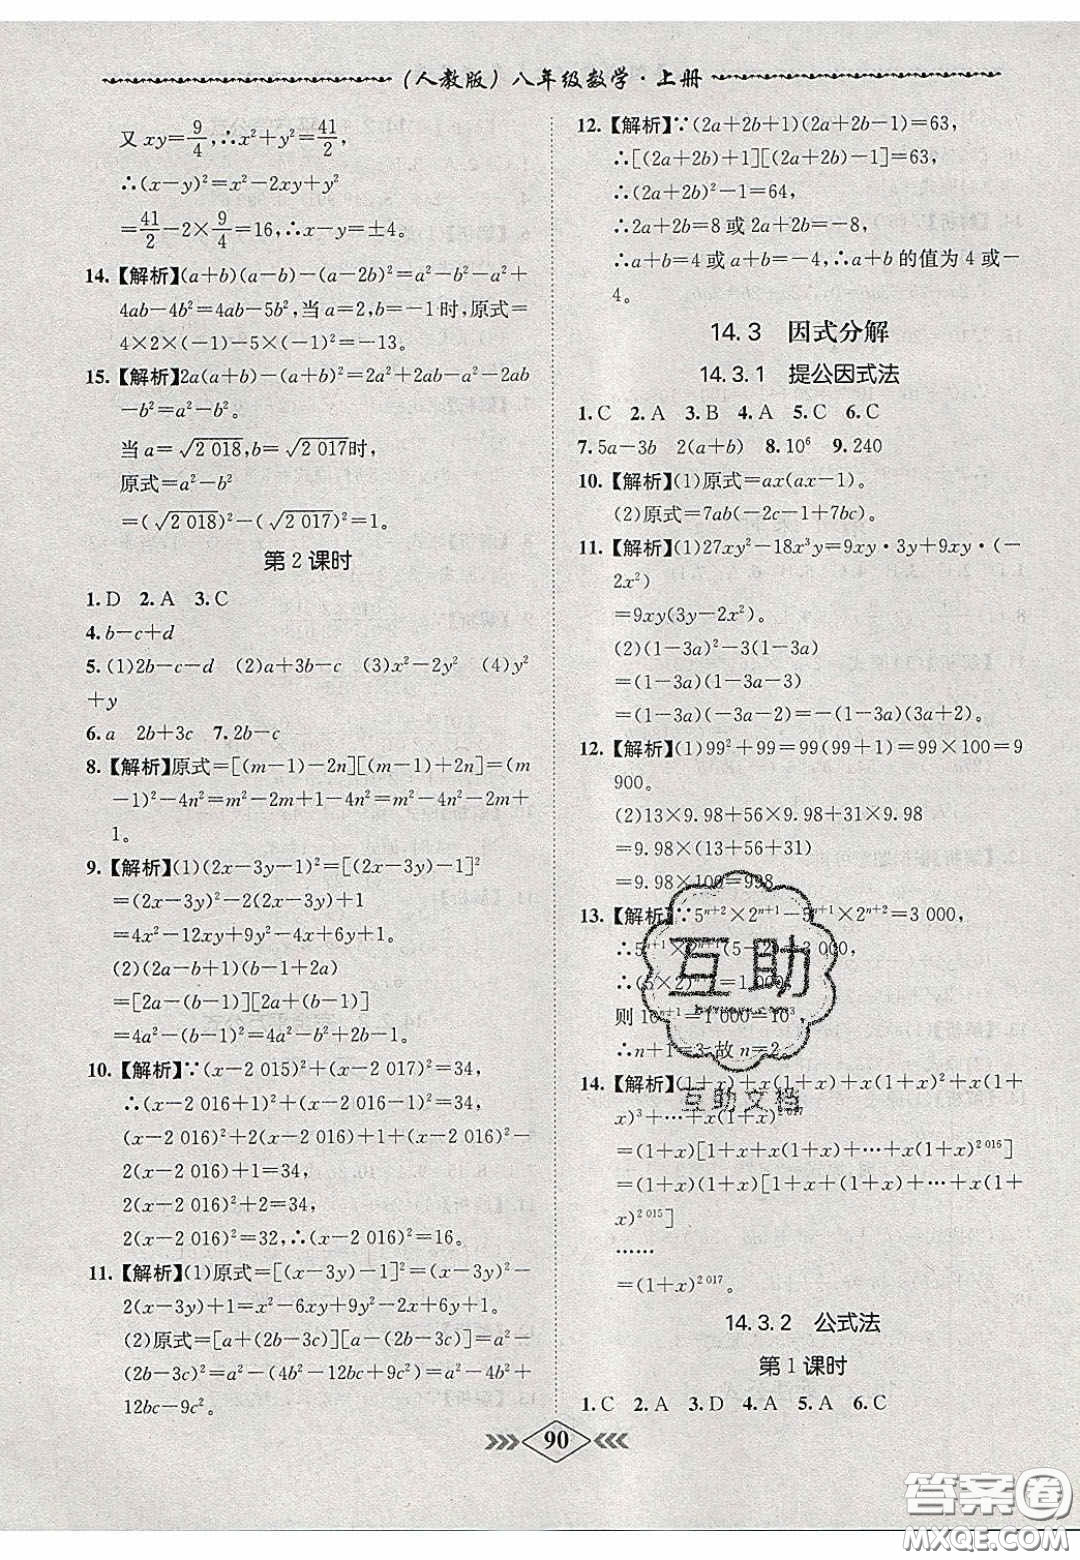 (人教版)八年级数学·上册
又 xy=9/4,∴x²+y²=41/2,
∴(x-y)²=x²-2xy+y²
=41/2-2×9/4=16,∴x-y=±4。
14.【解析】(a+b)(a-b)-(a-2b)²=a²-b²-a²+
4ab-4b²=4ab-5b²,当a=2,b=-1时,原式=
4×2×(-1)-5×(-1)²=-13。
15.【解析】2a(a+b)-(a+b)²=2a²+2ab-a²-2ab
-b²=a²-b²。
当a=√2 018,b=√2 017时,
原式=a²-b²
=(√2 018)²-(√2 017)²=1。
第2课时
1.D 2.A 3.C
4.b-c+d
5.(1)2b-c-d (2)a+3b-c (3)x²-2y² (4)y²
+y
6.a 2b+3c 7.2b-c
8.【解析】原式=[(m-1)-2n][(m-1)+2n]=(m
-1)²-4n²=m²-2m+1-4n²=m²-4n²-2m+
1。
9.【解析】(1)(2x-3y-1)²=[(2x-3y)-1]²
=(2x-3y)²-2(2x-3y)+1
=4x²-12xy+9y²-4x+6y+1。
(2)(2a-b+1)(b-1+2a)
=[2a-(b-1)][2a+(b-1)]
=4a²-(b-1)²=4a²-b²+2b-1。
10.【解析】∵(x-2 015)²+(x-2 017)²=34,
∴(x-2 016+1)²+(x-2 016-1)²=34,
(x-2 016)²+2(x-2 016)+1+(x-2 016)²-
2(x-2 016)+1=34,
2(x-2 016)²+2=34,
2(x-2 016)²=32,∴(x-2 016)²=16。
11.【解析】(1)原式=[(x-3y)-1]²=(x-3y)²-
2(x-3y)+1=x²-6xy+9y²-2x+6y+1。
(2)原式=[a+(2b-3c)][a-(2b-3c)]=a²-
(2b-3c)²=a²-(4b²-12bc+9c²)=a²-4b²+
12bc-9c²。
12.【解析】∵(2a+2b+1)(2a+2b-1)=63,
∴[(2a+2b)+1][(2a+2b)-1]=63,
∴(2a+2b)²-1=64,
∴2a+2b=8或2a+2b=-8,
∴a+b=4或a+b=-4,∴a+b的值为4或-
4。
14.3 因式分解
14.3.1 提公因式法
1.C 2.A 3.B 4.A 5.C 6.C
7.5a-3b 2(a+b) 8.10⁶ 9.240
10.【解析】(1)原式=ax(ax-1)。
(2)原式=7ab(-2c-1+7bc)。
11.【解析】(1)27xy²-18x³y=9xy·3y+9xy·(-
2x²)
=9xy(3y-2x²)。
(2)(1-3a)²-3(1-3a)
=(1-3a)(1-3a-3)
=(1-3a)(-3a-2)=-(1-3a)(3a+2)。
12.【解析】(1)99²+99=99(99+1)=99×100=9
900。
(2)13×9.98+56×9.98+31×9.98
=9.98×(13+56+31)
=9.98×100=998。
13.【解析】∵5ⁿ⁺²×2ⁿ⁺¹-5ⁿ⁺¹×2ⁿ⁺²=3 000,
∴5ⁿ⁺¹×2ⁿ⁺¹(5-2)=3 000,
∴(5×2)ⁿ⁺¹=1 000,
则10ⁿ⁺¹=1 000=10³,
∴n+1=3,故n=2。
14.【解析】(1+x)+x(1+x)+x(1+x)²+x(1+
x)³+…+x(1+x)²⁰¹⁷
=(1+x)[1+x+x(1+x)+…+x(1+x)²⁰¹⁶]
=(1+x)(1+x)[1+x+x(1+x)+…+x(1+
x)²⁰¹⁵]
……
=(1+x)²⁰¹⁷。
14.3.2 公式法
第1课时
1.C 2.A 3.D 4.A 5.A 6.C
90
互助
互助文档
答案圈
MXQE.COM